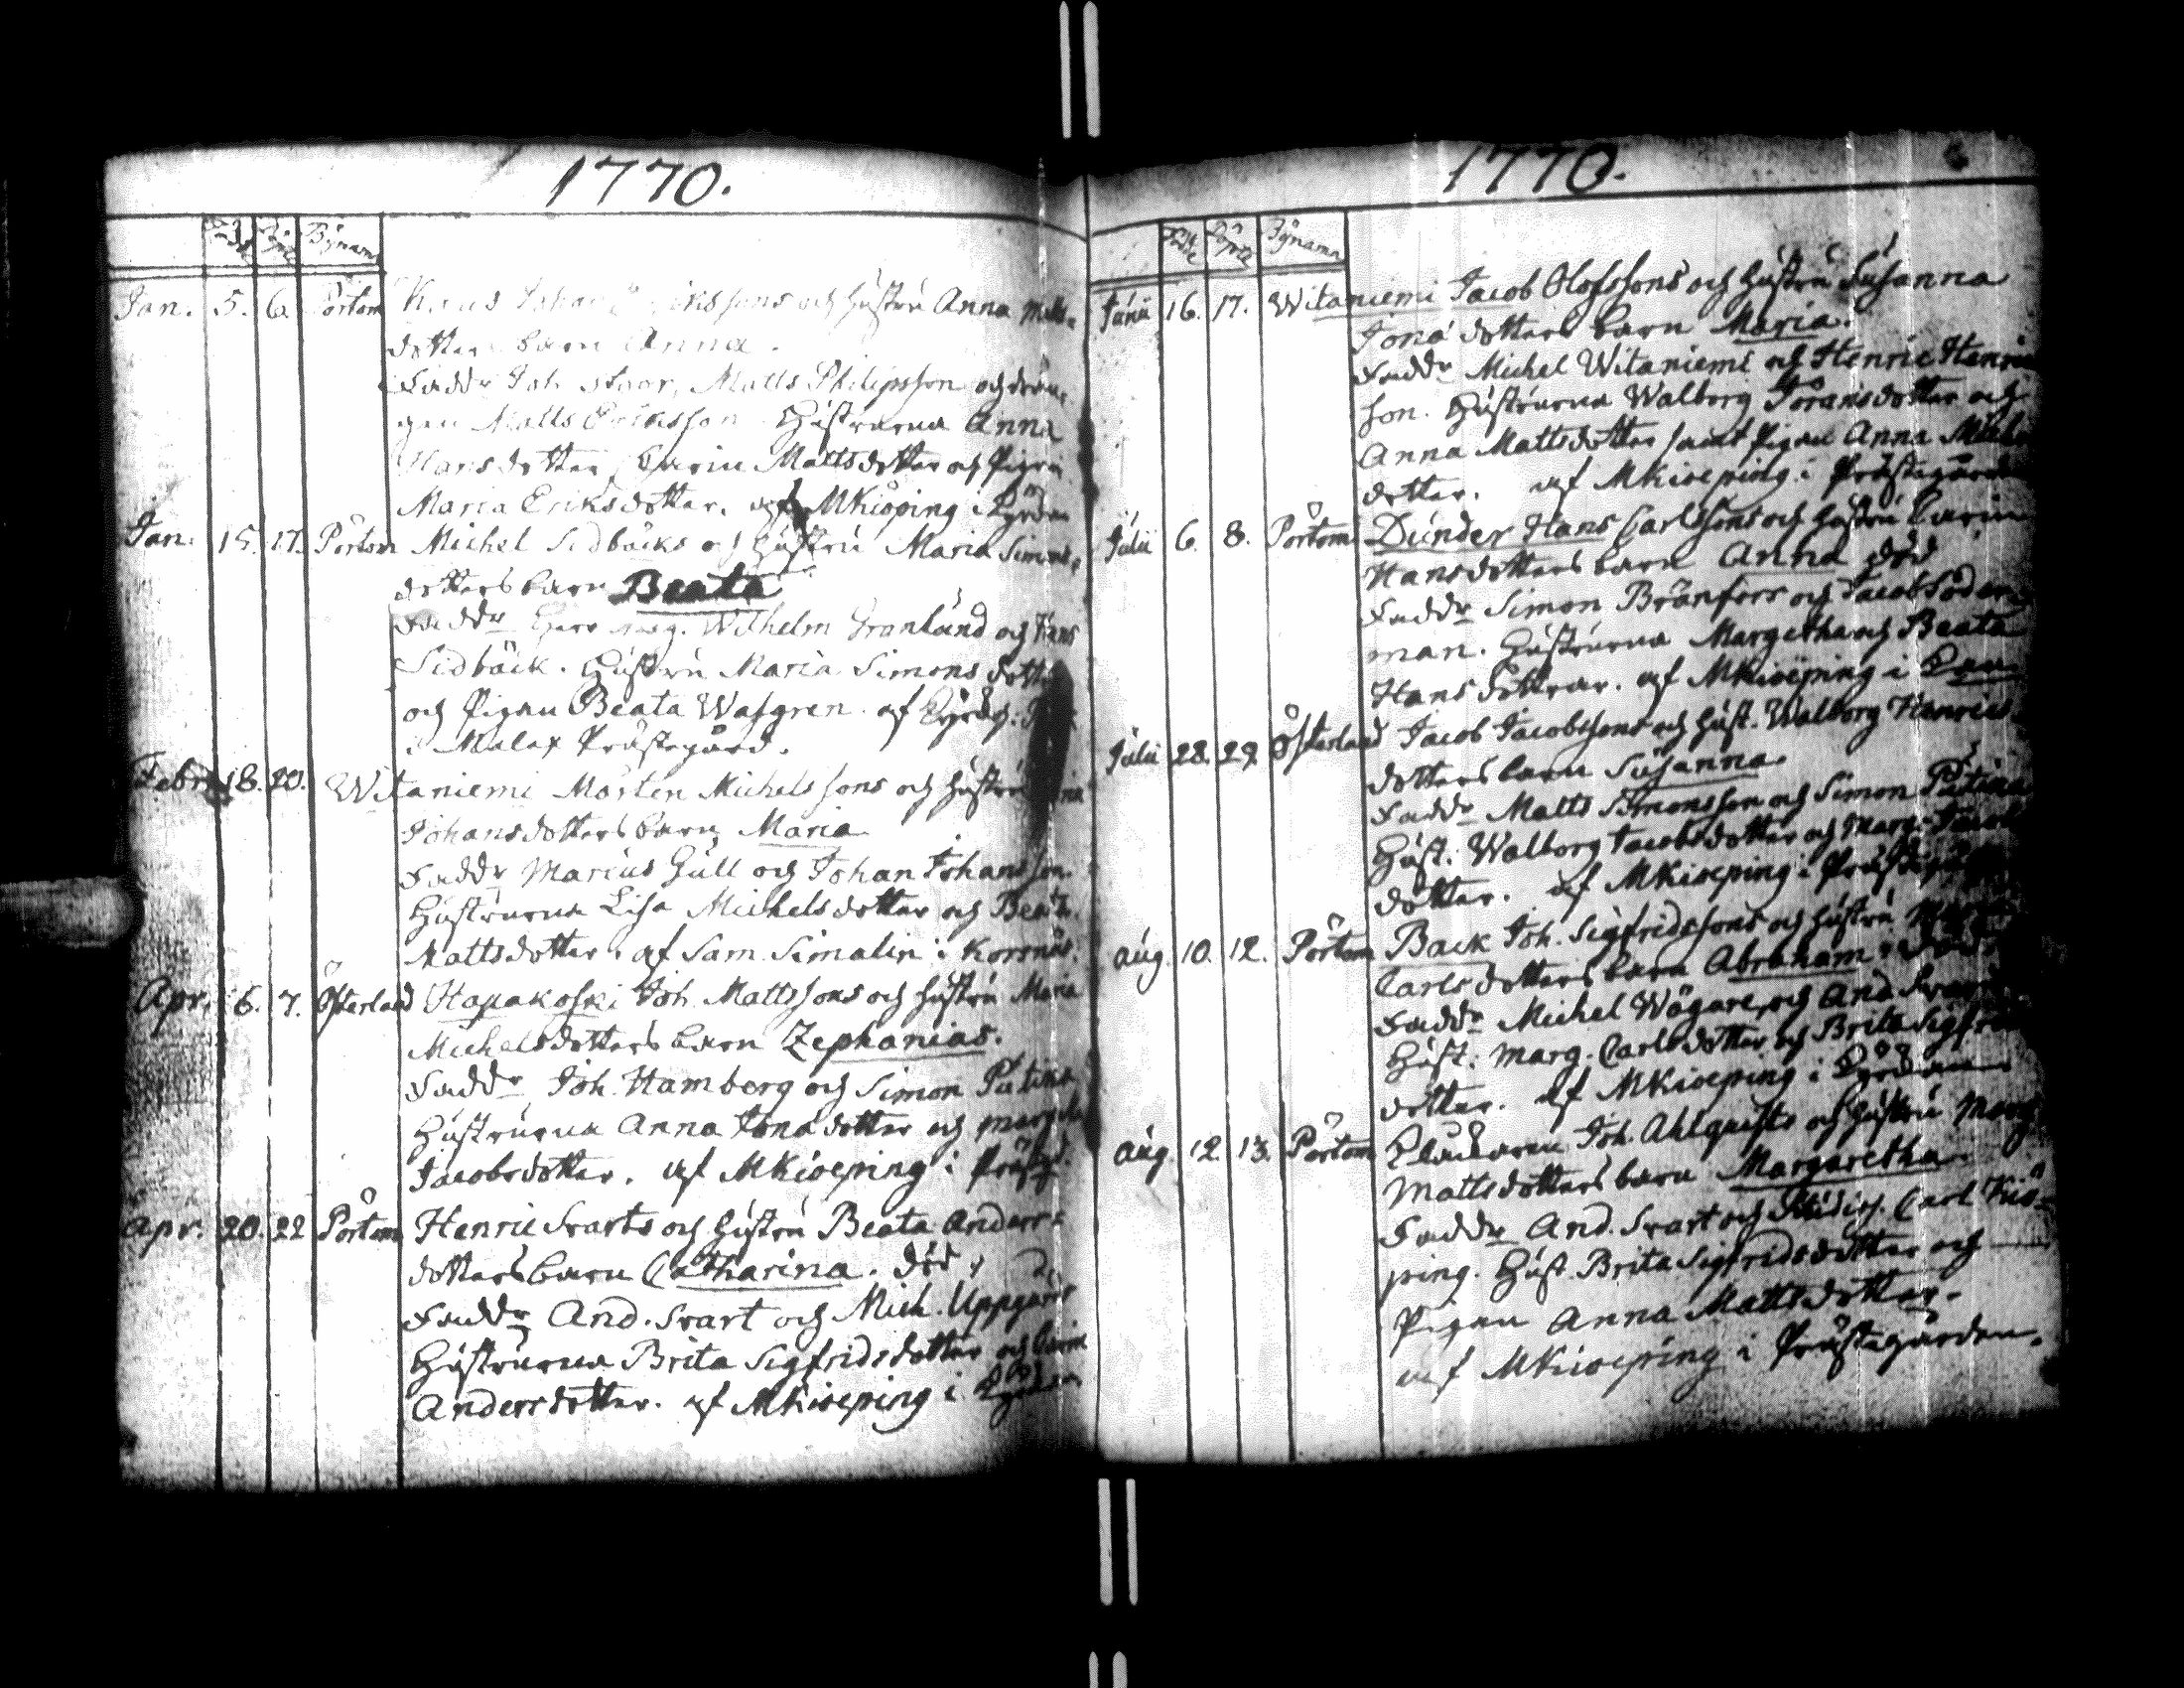 1770.
Född Döpte Bÿnamn
Jan. 5. 6. Pörtom Johan och hustru Anna Matts
dotters barn Anna.
Faddr Joh. Staor, Matts Philipsson och drän
gen Matts Eriksson. Hustrurna Anna
Hansdotter, Carin Mattsdotter och Pigan
Maria Eriksdotter. af MKiöping i Kyrckan
Jan. 15. 17. Pörtom Michel Sidbäcks och hustru Maria Simons
dotters barn Beata
Faddr Herr mag. Wilhelm Granlund och Hans
Sidbäck. Hustru Maria Simonsdotter
och Pigan Beata Wasgren. af
i Malax Prästegård.
Febr. 18. 20. Witaniemi Mårten Michelssons och hustru
Johansdotters barn Maria
Faddr Marcus Gull och Johan Johansson.
Hustrurna Lisa Michelsdotter och Beata
Mattsdotter. af Sam. Simalin i Korsnäs.
Apr. 6. 7. Österland Hapakoski Joh. Mattssons och hustru Maria
Michelsdotters barn Zephanias.
Faddr Joh. Hamberg och Simon Putikas
Hustrurna Anna Jonædotter och Margetha
Jacobsdotter. af MKioeping i Prästg.
Apr. 20. 22 Pörtom Henric Svarts och hustru Beata Anders
dotters barn Catharina. död
Faddr And. Svart och Mich. Uppgård
Hustrurna Brita Sigfridsdotter och Carin
Andersdotter. af MKioeping i Kyrckan
1770.
Född Döpte Bÿnamn
Junii 16. 17. Witaniemi Jacob Olofssons och hustru Susanna
Jonædotters barn Maria.
Faddr Michel Witaniemi och Henric Henric
son. Hustrurna Walborg Jöransdotter och
Anna Mattsdotter samt Pigan Anna Michels
dotter. af MKioeping i Prästegården
Julii 6. 8. Pörtom Dunder Hans Carlssons och hustru Carin
Hansdotters barn Anna död
Faddr Simon Brånfors och Jacob Söder
man. Hustrurna Margetha och Beata
Hansdottrar. af MKioeping i
Julii 28. 29 Österland Jacob Jacobssons och hust. Walborg Henrics
dotters barn Susanna.
Faddr Matts Simonsson och Simon Putikas
Hust. Walborg Jacobsdotter och Marg. Jacobs
dotter. af MKioeping i Prästegården
Aug. 10. 12. Pörtom Back Joh. Sigfridssons och hustru Marg.
Carlsdotters barn Abraham. död
Faddr Michel Wägare och And. Svart
Hust. Marg. Carlsdotter och Brita Sigfrids
dotter. af MKioeping i Kyrckan
Aug. 12 13. Pörtom Klockaren Joh. Ahlquists och hustru Marg.
Mattsdotters barn Margaretha.
Faddr And. Svart och Studios. Carl Kiö-
ping. Hust. Brita Sigfridsdotter och
Pigan Anna Mattsdotter.
af MKioeping i Prästegården.